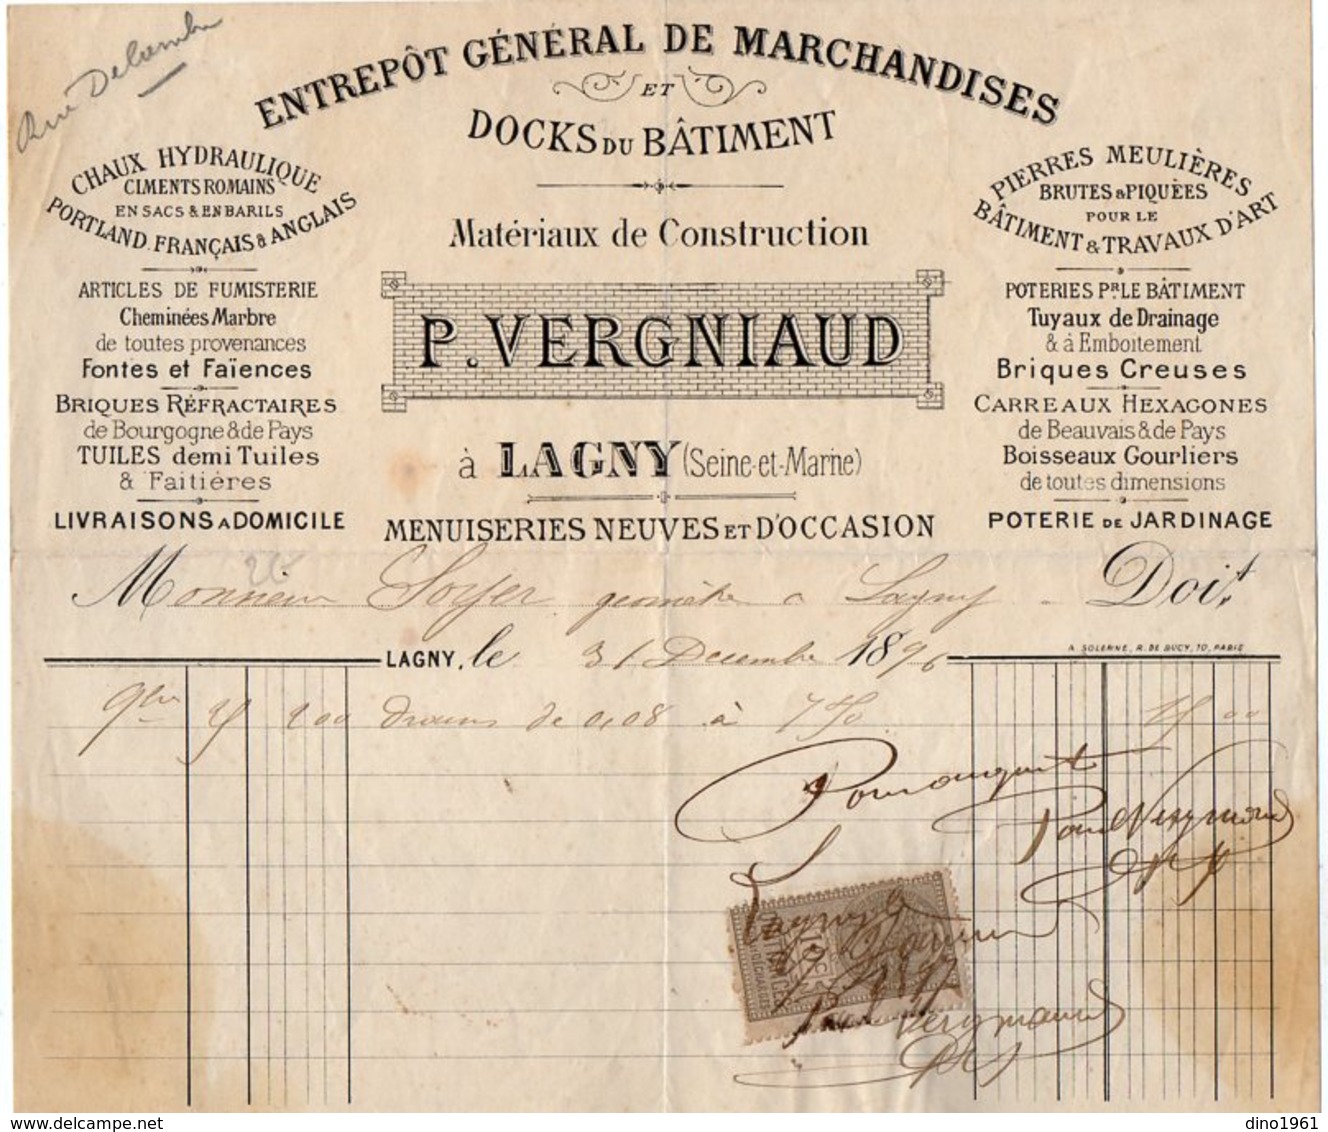 Rue Delambre
ENTREPÔT GÉNÉRAL DE MARCHANDISES
ET
DOCKS DU BÂTIMENT
Matériaux de Construction
P. VERGNIAUD
à LAGNY (Seine-et-Marne)
MENUISERIES NEUVES ET D'OCCASION
CHAUX HYDRAULIQUE
CIMENTS ROMAINS
EN SACS & EN BARILS
PORTLAND. FRANÇAIS & ANGLAIS
ARTICLES DE FUMISTERIE
Cheminées Marbre
de toutes provenances
Fontes et Faïences
BRIQUES RÉFRACTAIRES
de Bourgogne & de Pays
TUILES demi Tuiles
& Faitières
LIVRAISONS A DOMICILE
PIERRES MEULIÈRES
BRUTES & PIQUÉES
POUR LE
BÂTIMENT & TRAVAUX D'ART
POTERIES PR LE BÂTIMENT
Tuyaux de Drainage
& à Emboitement
Briques Creuses
CARREAUX HEXAGONES
de Beauvais & de Pays
Boisseaux Gourliers
de toutes dimensions
POTERIE DE JARDINAGE
Monsieur Soyer géomètre a Lagny Doit
LAGNY, le 31 Decembre 1896
A. SOLERNE, R. DE BUCY, 10, PARIS
9bre 25 200 drains de 0,08 à 7 50 15 00
Pour acquit
Paul Vergniaud
Lagny le
1897
Vergniaud
www.delcampe.net
dino1961